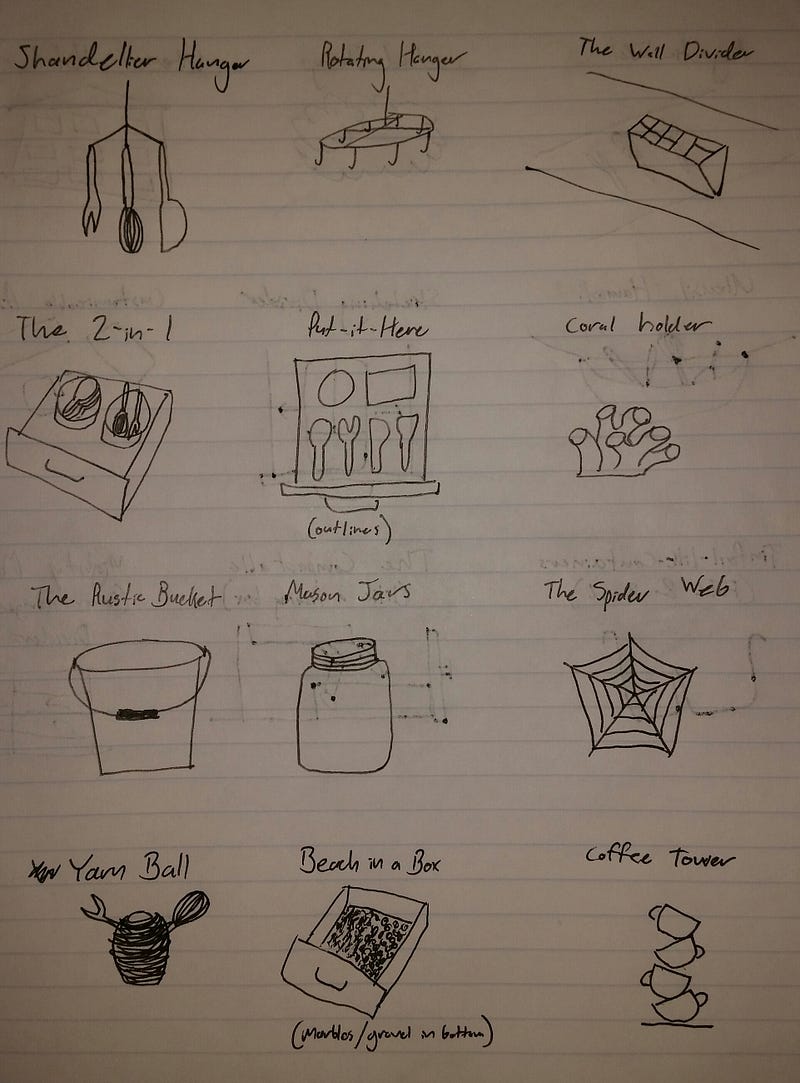 Shandelier Hanger
Rotating Hanger
The Wall Divider
The 2-in-1
Put-it-Here
Coral holder
(outlines)
The Rustic Bucket
Mason Jars
The Spider Web
Yarn Ball
Beach in a Box
Coffee Tower
(Marbles/gravel in bottom)